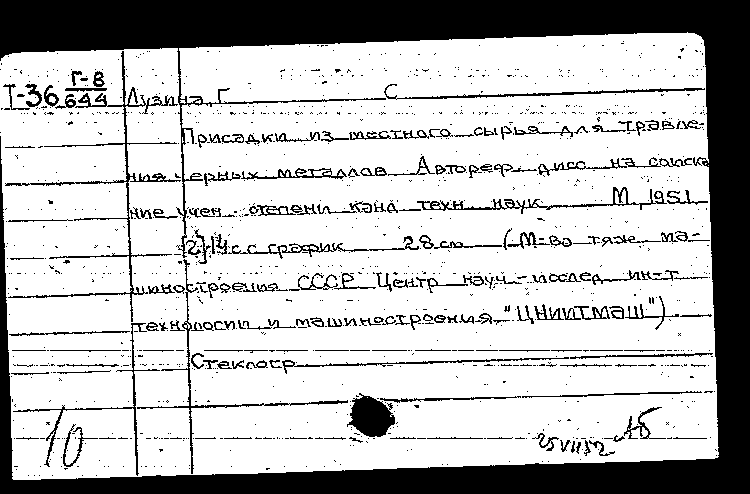 Г-8
Т-36 644 Лузина, Г С
Присадки из местного сырья для травле-
ния черных металлов Автореф. дисс. на соиска
ние учен. степени канд техн наук М, 1951
[2], 14 с с график 28 см (М-во тяж. ма-
шиностроения СССР Центр науч.-исслед ин-т
технологии и машиностроения "ЦНИИТМАШ")
Стеклогр
10
25 VII 52